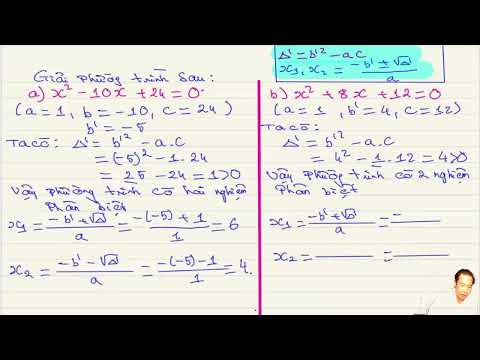 Giải phường trình sau:
a) x² - 10x + 24 = 0
(a = 1, b = -10, c = 24)
b' = -5
Ta có: Δ' = b'² - a.c
= (-5)² - 1.24
= 25 - 24 = 1 > 0
Vậy phường trình có hai nghiệm
phân biệt
x1 = (-b' + √Δ')/a = (-(-5) + 1)/1 = 6
x2 = (-b' - √Δ')/a = (-(-5) - 1)/1 = 4.
Δ' = b'² - a.c
x1, x2 = (-b' ± √Δ')/a
b) x² + 8x + 12 = 0
(a = 1, b' = 4, c = 12)
Ta có:
Δ' = b'² - a.c
= 4² - 1.12 = 4 > 0
Vậy phường trình có 2 nghiệm
phân biệt
x1 = (-b' + √Δ')/a = -
x2 = =